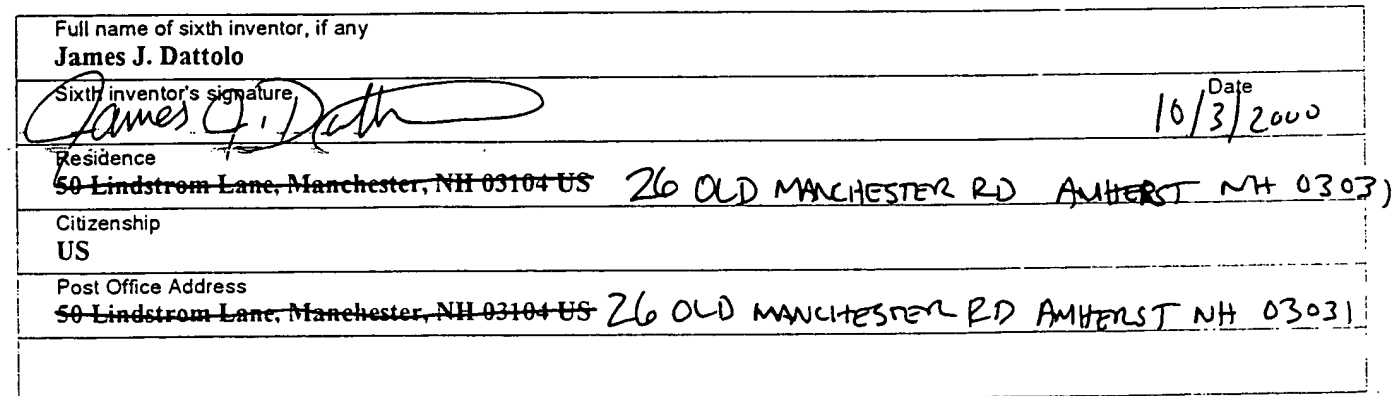 Full name of sixth inventor, if any
James J. Dattolo
Sixth inventor's signature
James J. Datt
Date
10/3/2000
Residence
50 Lindstrom Lane, Manchester, NH 03104 US 26 OLD MANCHESTER RD AMHERST NH 03031
Citizenship
US
Post Office Address
50 Lindstrom Lane, Manchester, NH 03104 US 26 OLD MANCHESTER RD AMHERST NH 03031